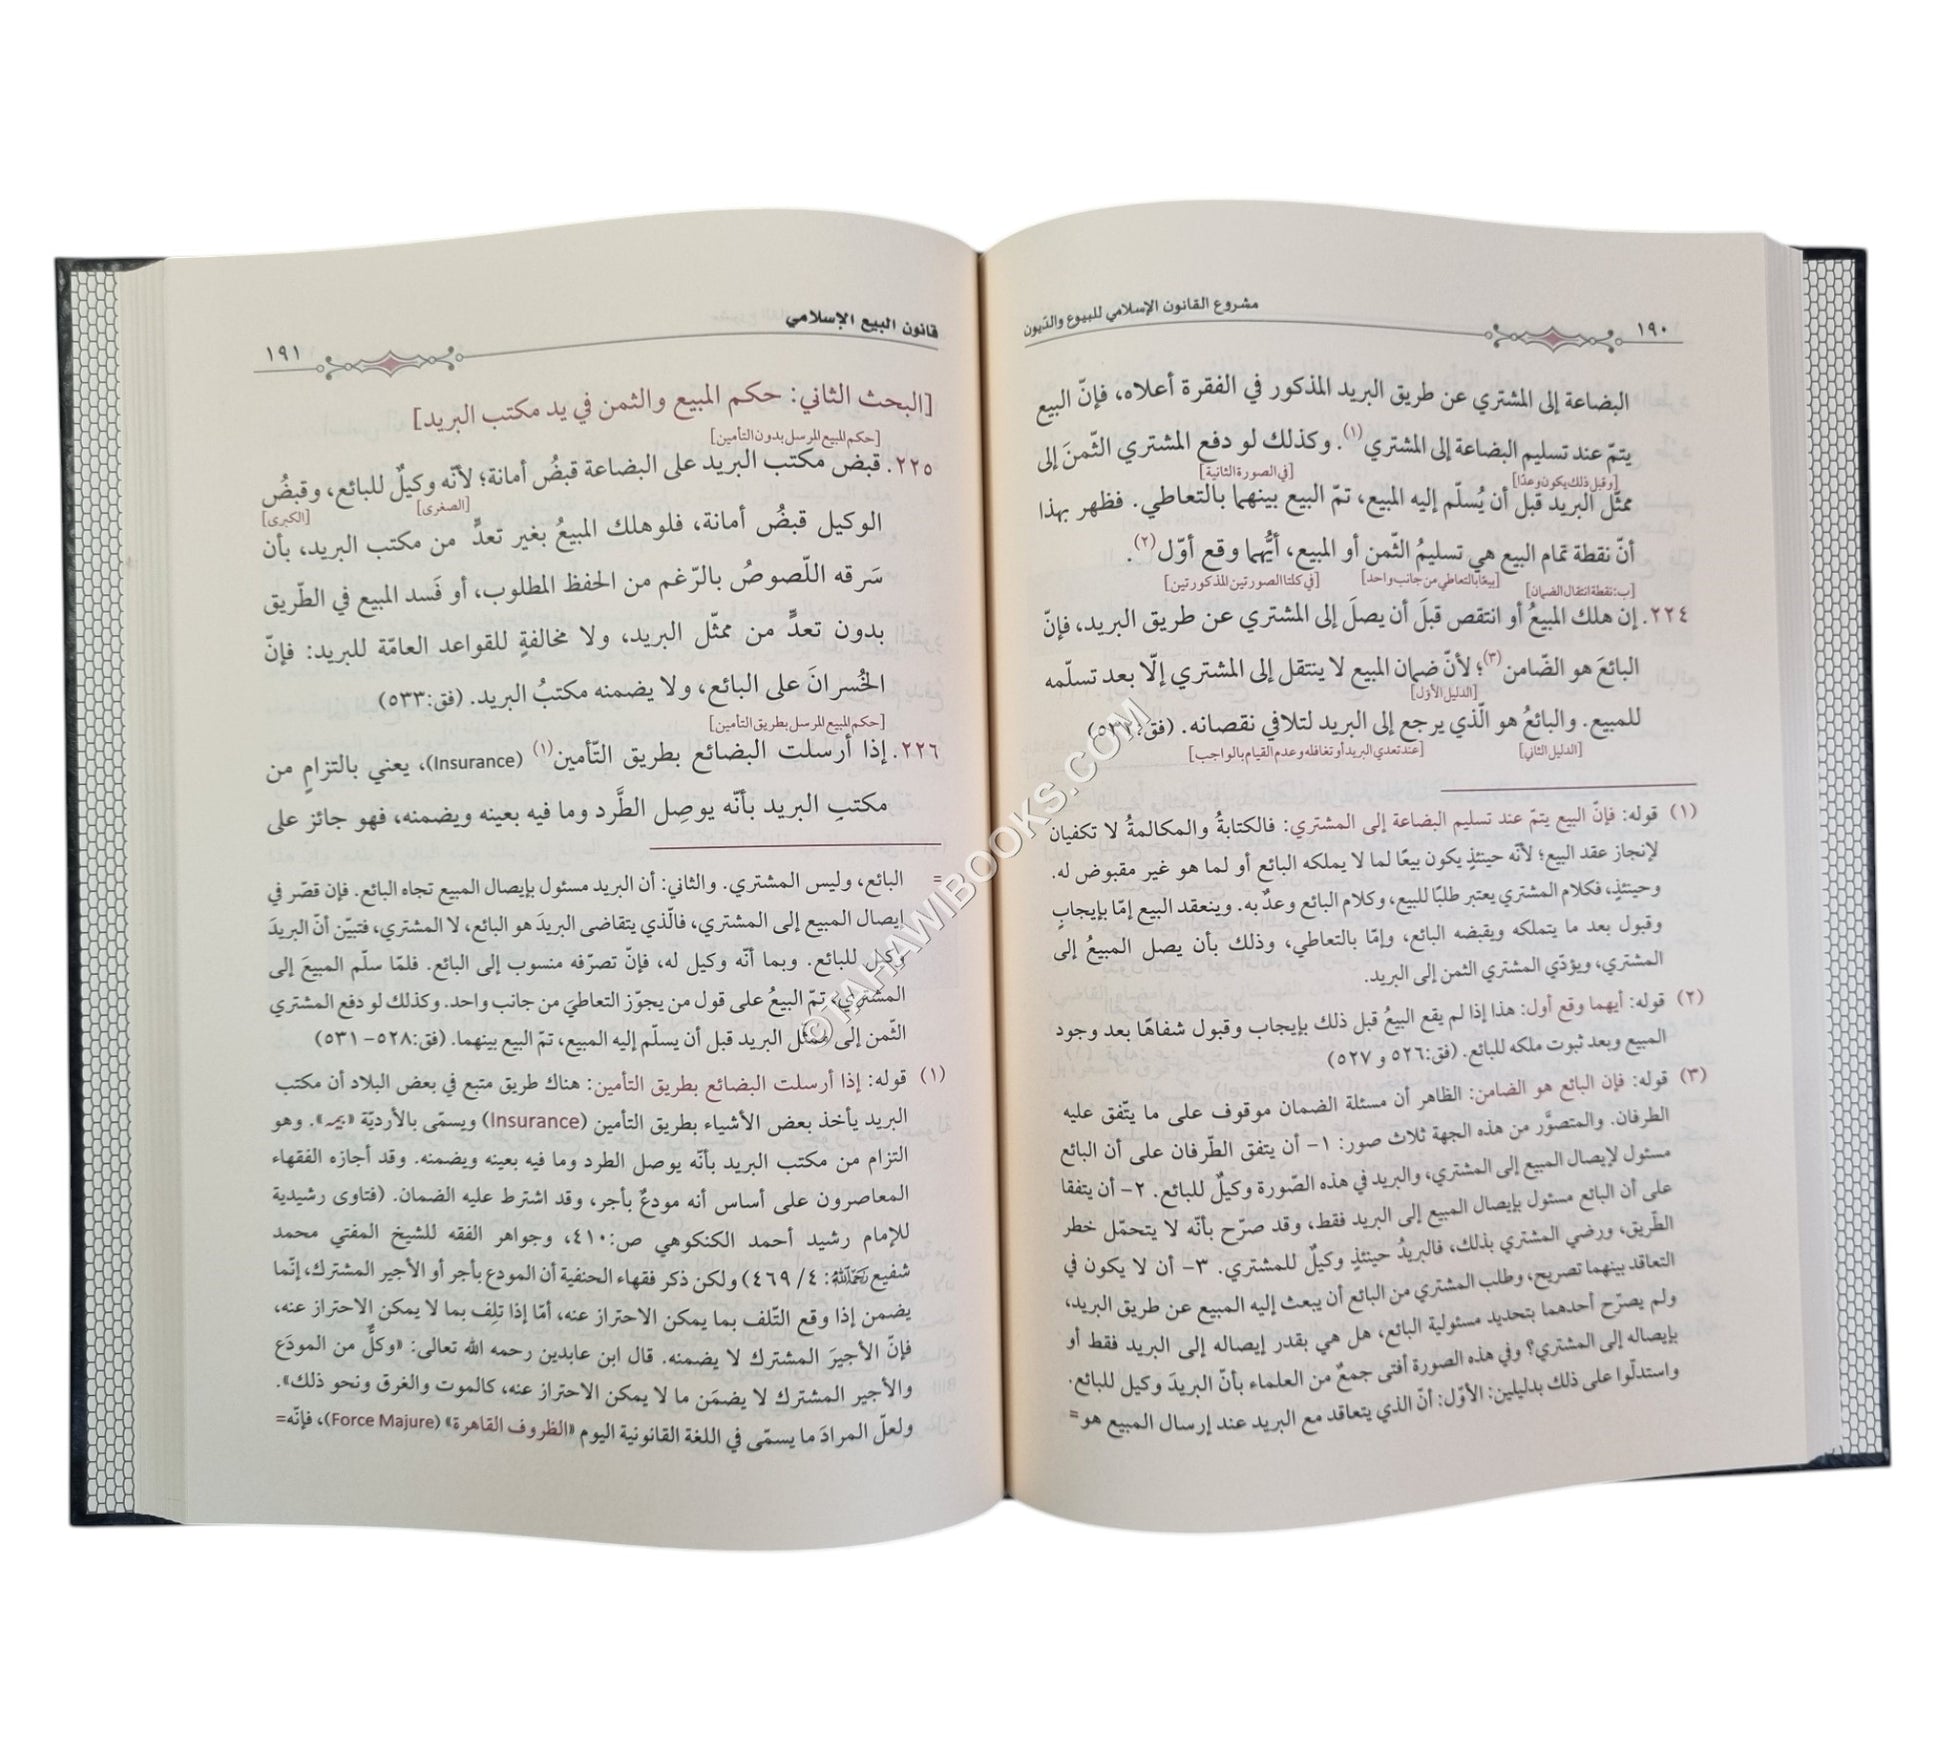 مشروع القانون الإسلامي للبيوع والدّيون
١٩٠
البضاعة إلى المشتري عن طريق البريد المذكور في الفقرة أعلاه، فإنّ البيع
يتمّ عند تسليم البضاعة إلى المشتري(١). وكذلك لو دفع المشتري الثّمنَ إلى
[وقبل ذلك يكون وعدًا] [في الصورة الثانية]
ممثّل البريد قبل أن يُسلّم إليه المبيع، تمّ البيع بينهما بالتعاطي. فظهر بهذا
أنّ نقطة تمام البيع هي تسليمُ الثّمن أو المبيع، أيُّهما وقع أوّل(٢).
[ب: نقطة انتقال الضمان] [بيعًا بالتعاطي من جانب واحد] [في كلتا الصورتين المذكورتين]
٢٢٤. إن هلك المبيعُ أو انتقص قبلَ أن يصلَ إلى المشتري عن طريق البريد، فإنّ
البائعَ هو الضّامن(٣)؛ لأنّ ضمان المبيع لا ينتقل إلى المشتري إلّا بعد تسلّمه
[الدليل الأوّل]
للمبيع. والبائعُ هو الّذي يرجع إلى البريد لتلافي نقصانه. (فق:٥٣٢)
[الدليل الثاني] [عند تعدي البريد أو تغافله وعدم القيام بالواجب]
(١) قوله: فإنّ البيع يتمّ عند تسليم البضاعة إلى المشتري: فالكتابةُ والمكالمةُ لا تكفيان
لإنجاز عقد البيع؛ لأنّه حينئذٍ يكون بيعًا لما لا يملكه البائع أو لما هو غير مقبوض له.
وحينئذٍ، فكلام المشتري يعتبر طلبًا للبيع، وكلام البائع وعدٌ به. وينعقد البيع إمّا بإيجابٍ
وقبول بعد ما يتملكه ويقبضه البائع، وإمّا بالتعاطي، وذلك بأن يصل المبيعُ إلى
المشتري، ويؤدّي المشتري الثمن إلى البريد.
(٢) قوله: أيهما وقع أول: هذا إذا لم يقع البيعُ قبل ذلك بإيجاب وقبول شفاهًا بعد وجود
المبيع وبعد ثبوت ملكه للبائع. (فق:٥٢٦ و ٥٢٧)
(٣) قوله: فإن البائع هو الضامن: الظاهر أن مسئلة الضمان موقوف على ما يتّفق عليه
الطرفان. والمتصوَّر من هذه الجهة ثلاث صور: ١- أن يتفق الطّرفان على أن البائع
مسئول لإيصال المبيع إلى المشتري، والبريد في هذه الصّورة وكيلٌ للبائع. ٢- أن يتفقا
على أن البائع مسئول بإيصال المبيع إلى البريد فقط، وقد صرّح بأنّه لا يتحمّل خطر
الطّريق، ورضي المشتري بذلك، فالبريدُ حينئذٍ وكيلٌ للمشتري. ٣- أن لا يكون في
التعاقد بينهما تصريح، وطلب المشتري من البائع أن يبعث إليه المبيع عن طريق البريد،
ولم يصرّح أحدهما بتحديد مسئولية البائع، هل هي بقدر إيصاله إلى البريد فقط أو
بإيصاله إلى المشتري؟ وفي هذه الصورة أفتى جمعٌ من العلماء بأنّ البريدَ وكيل للبائع.
واستدلّوا على ذلك بدليلين: الأوّل: أنّ الذي يتعاقد مع البريد عند إرسال المبيع هو=
قانون البيع الإسلامي
١٩١
[البحث الثاني: حكم المبيع والثمن في يد مكتب البريد]
[حكم المبيع المرسل بدون التأمين]
٢٢٥. قبض مكتب البريد على البضاعة قبضُ أمانة؛ لأنّه وكيلٌ للبائع، وقبضُ
[الصغرى] [الكبرى]
الوكيل قبضُ أمانة، فلو هلك المبيعُ بغير تعدٍّ من مكتب البريد، بأن
سَرقه اللّصوصُ بالرّغم من الحفظ المطلوب، أو فَسد المبيع في الطّريق
بدون تعدٍّ من ممثّل البريد، ولا مخالفةٍ للقواعد العامّة للبريد: فإنّ
الخُسرانَ على البائع، ولا يضمنه مكتبُ البريد. (فق:٥٣٣)
[حكم المبيع المرسل بطريق التأمين]
٢٢٦. إذا أرسلت البضائع بطريق التّأمين(١) (Insurance)، يعني بالتزامٍ من
مكتبِ البريد بأنّه يوصِل الطَّرد وما فيه بعينه ويضمنه، فهو جائز على
= البائع، وليس المشتري. والثاني: أن البريد مسئول بإيصال المبيع تجاه البائع. فإن قصّر في
إيصال المبيع إلى المشتري، فالّذي يتقاضى البريدَ هو البائع، لا المشتري، فتبيّن أنّ البريدَ
وكيل للبائع. وبما أنّه وكيل له، فإنّ تصرّفه منسوب إلى البائع. فلمّا سلّم المبيعَ إلى
المشتري، تمّ البيعُ على قول من يجوّز التعاطيَ من جانب واحد. وكذلك لو دفع المشتري
الثّمن إلى ممثّل البريد قبل أن يسلّم إليه المبيع، تمّ البيع بينهما. (فق:٥٢٨- ٥٣١)
(١) قوله: إذا أرسلت البضائع بطريق التأمين: هناك طريق متبع في بعض البلاد أن مكتب
البريد يأخذ بعض الأشياء بطريق التأمين (Insurance) ويسمّى بالأرديّة «بيمه». وهو
التزام من مكتب البريد بأنّه يوصل الطرد وما فيه بعينه ويضمنه. وقد أجازه الفقهاء
المعاصرون على أساس أنه مودعٌ بأجر، وقد اشترط عليه الضمان. (فتاوى رشيدية
للإمام رشيد أحمد الكنكوهي ص:٤١٠، وجواهر الفقه للشيخ المفتي محمد
شفيع رحمه الله: ٤/ ٤٦٩) ولكن ذكر فقهاء الحنفية أن المودع بأجر أو الأجير المشترك، إنّما
يضمن إذا وقع التّلف بما يمكن الاحتراز عنه، أمّا إذا تلِف بما لا يمكن الاحتراز عنه،
فإنّ الأجيرَ المشترك لا يضمنه. قال ابن عابدين رحمه الله تعالى: «وكلٌّ من المودَع
والأجير المشترك لا يضمَن ما لا يمكن الاحتراز عنه، كالموت والغرق ونحو ذلك».
ولعلّ المرادَ ما يسمّى في اللغة القانونية اليوم «الظروف القاهرة» (Force Majure)، فإنّه=
©TAHAWIBOOKS.COM